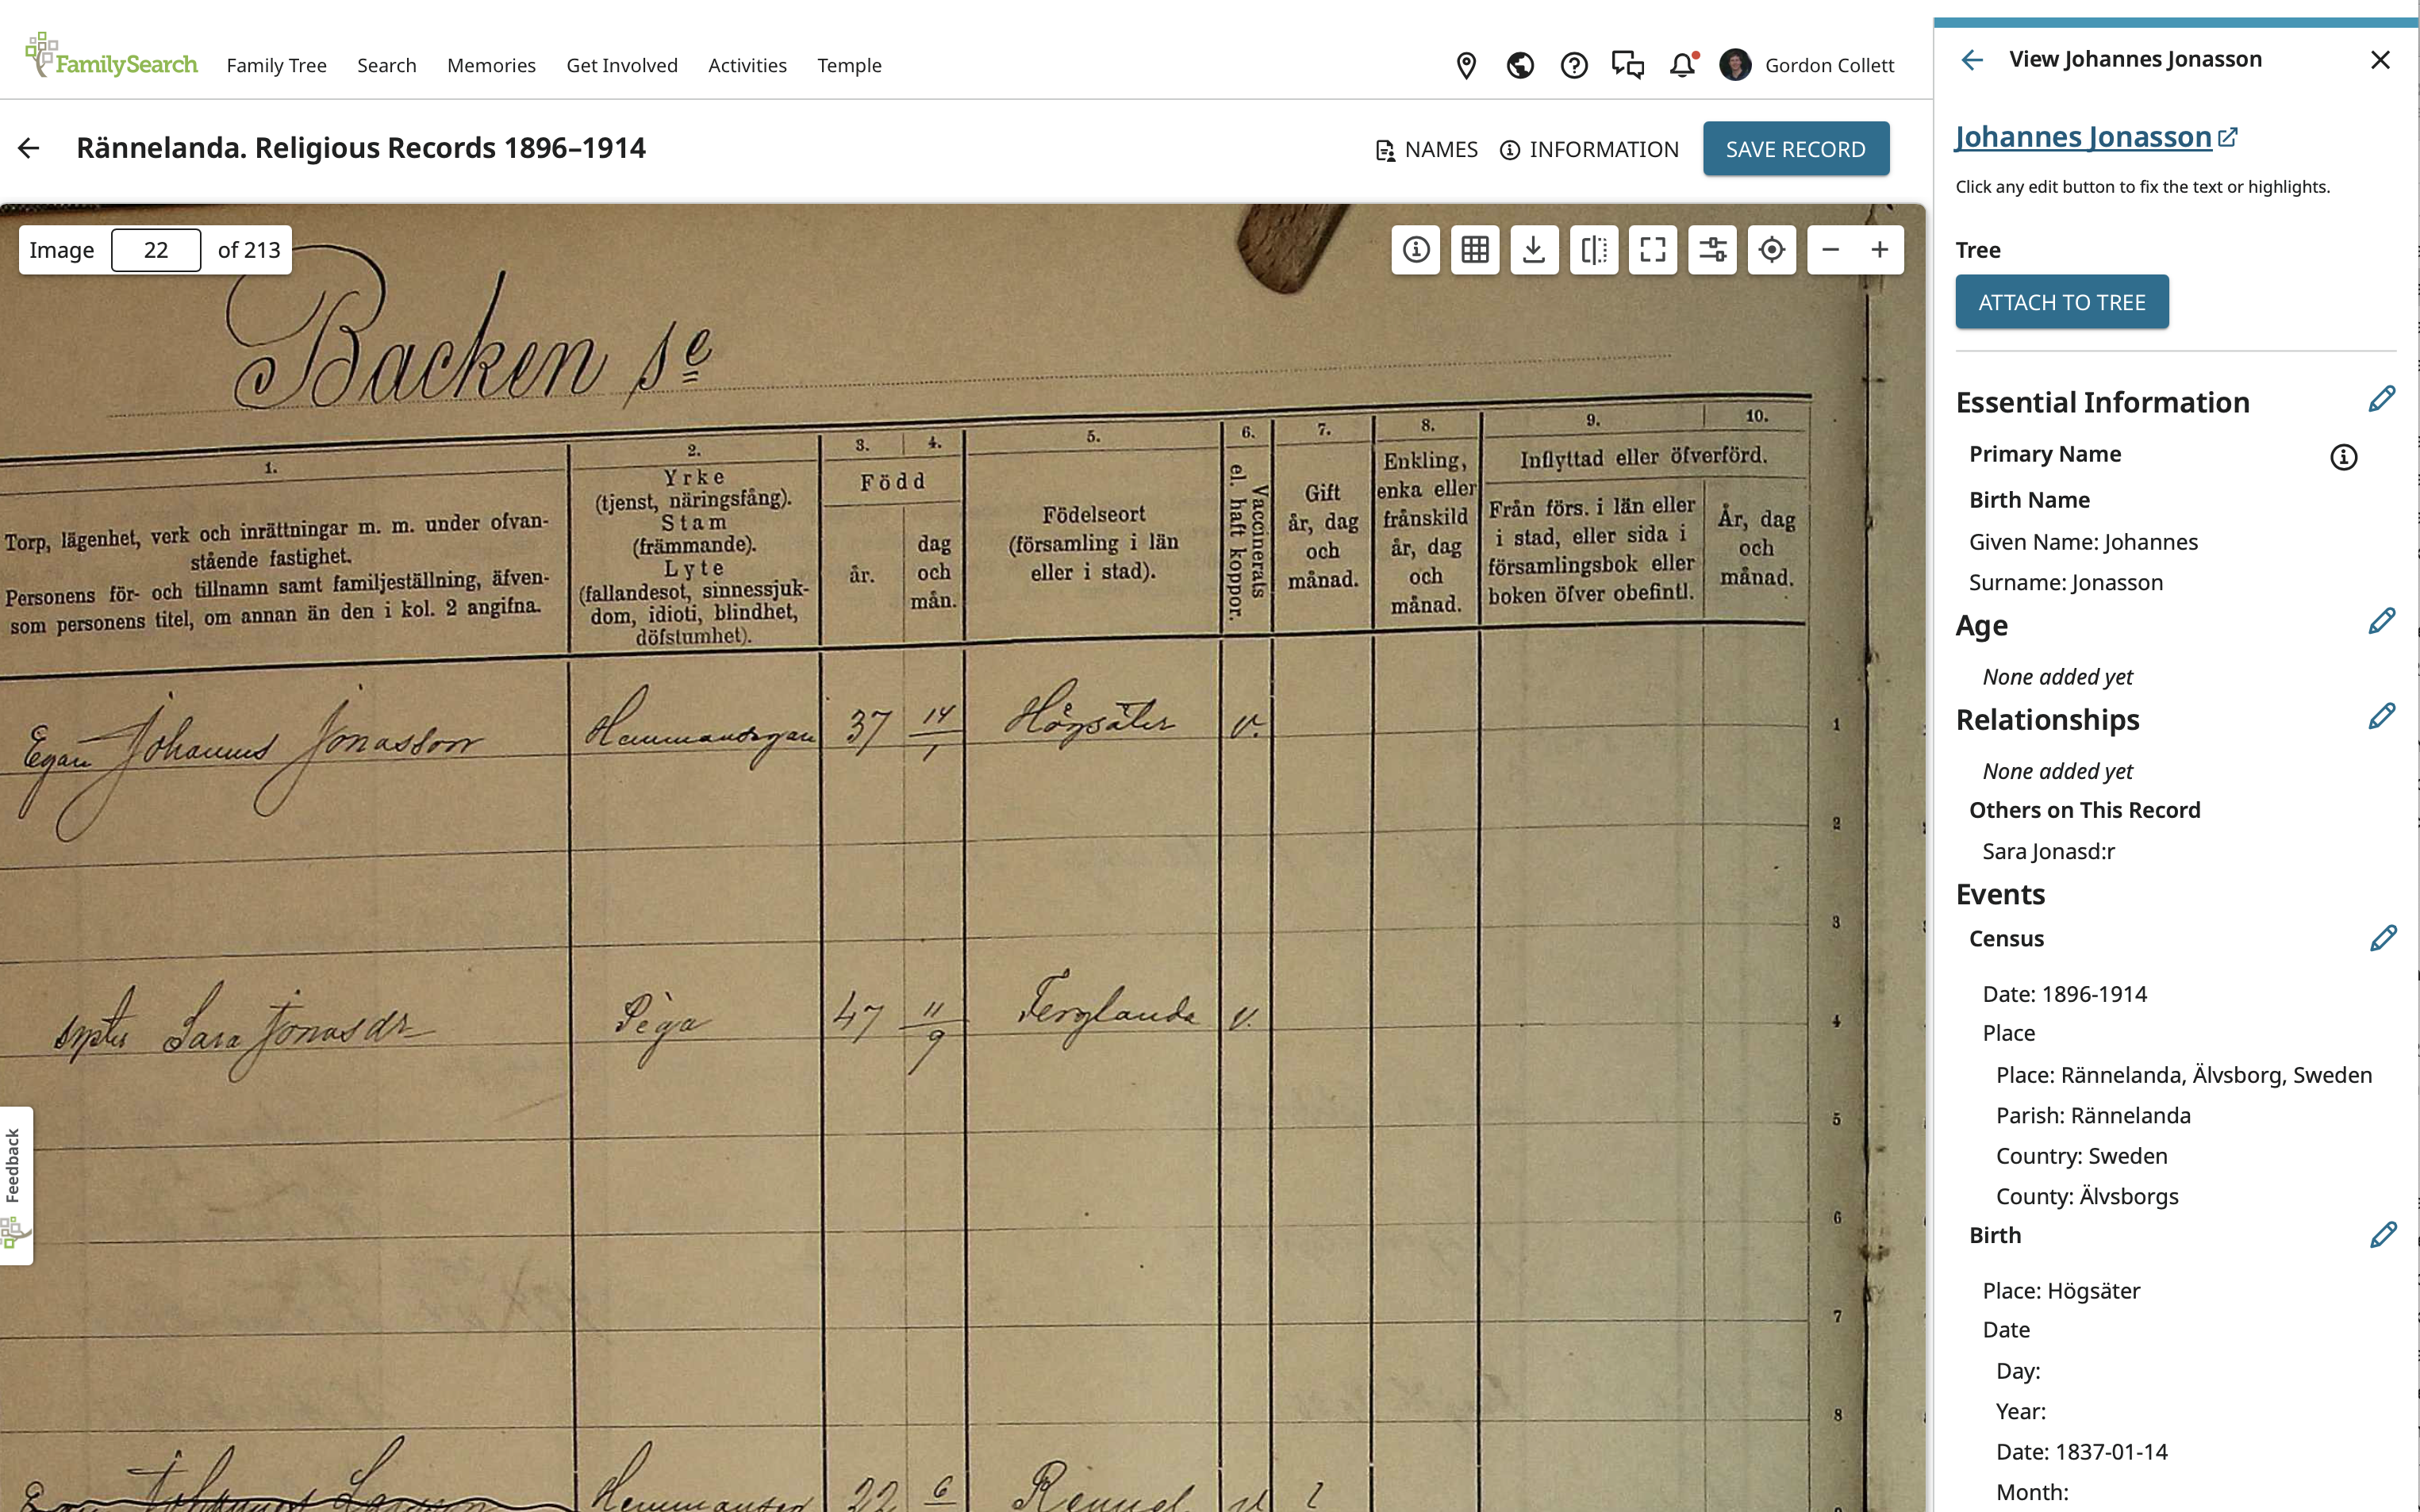 FamilySearch
Family Tree
Search
Memories
Get Involved
Activities
Temple
Gordon Collett
Rännelanda. Religious Records 1896–1914
NAMES
INFORMATION
SAVE RECORD
Image 22 of 213
Backen se
1.
Torp, lägenhet, verk och inrättningar m. m. under ofvan-
stående fastighet.
Personens för- och tillnamn samt familjeställning, äfven-
som personens titel, om annan än den i kol. 2 angifna.
2.
Yrke
(tjenst, näringsfång).
Stam
(främmande).
Lyte
(fallandesot, sinnessjuk-
dom, idioti, blindhet,
döfstumhet).
3. 4.
Född
år.
dag
och
mån.
5.
Födelseort
(församling i län
eller i stad).
6.
Vaccinerats
el. haft koppor.
7.
Gift
år, dag
och
månad.
8.
Enkling,
enka eller
frånskild
år, dag
och
månad.
9. 10.
Inflyttad eller öfverförd.
Från förs. i län eller
i stad, eller sida i
församlingsbok eller
boken öfver obefintl.
År, dag
och
månad.
Egan Johannes Jonasson Hemmansegare 37 14/1 Högsäter v. 1
2
3
Sara Jonasdr Pega 47 11/9 Ferglanda v. 4
5
6
7
8
Johannes Larsson 22 6
Feedback
View Johannes Jonasson
Johannes Jonasson
Click any edit button to fix the text or highlights.
Tree
ATTACH TO TREE
Essential Information
Primary Name
Birth Name
Given Name: Johannes
Surname: Jonasson
Age
None added yet
Relationships
None added yet
Others on This Record
Sara Jonasd:r
Events
Census
Date: 1896-1914
Place
Place: Rännelanda, Älvsborg, Sweden
Parish: Rännelanda
Country: Sweden
County: Älvsborgs
Birth
Place: Högsäter
Date
Day:
Year:
Date: 1837-01-14
Month: